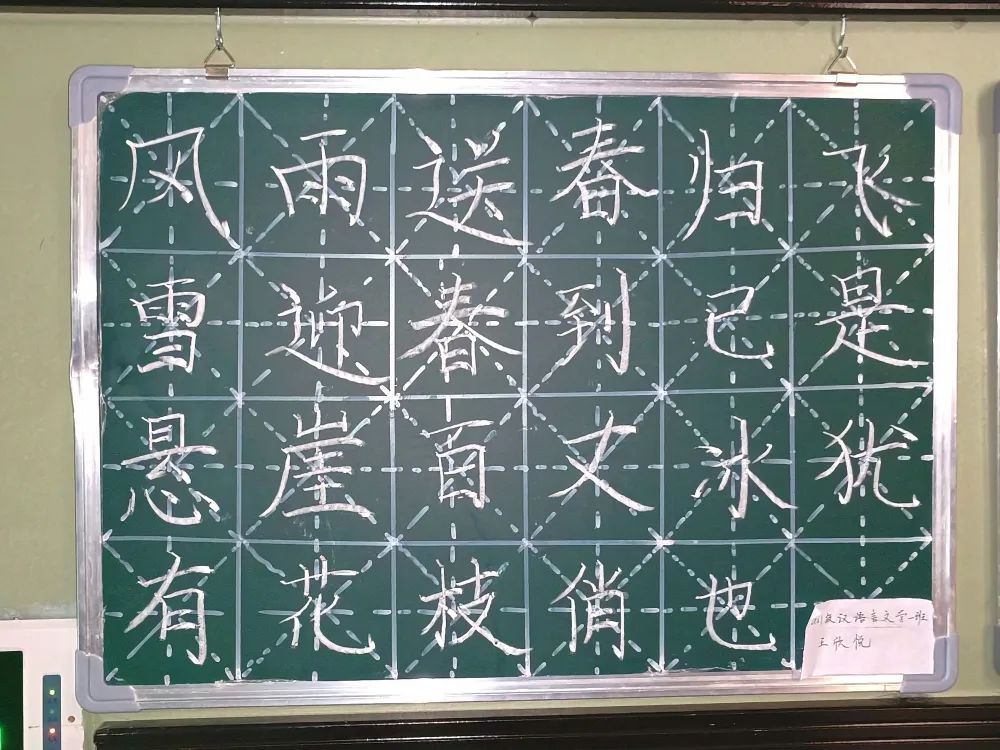 风雨送春归飞
雪迎春到已是
悬崖百丈冰犹
有花枝俏也
汉语言文学一班
王欣悦